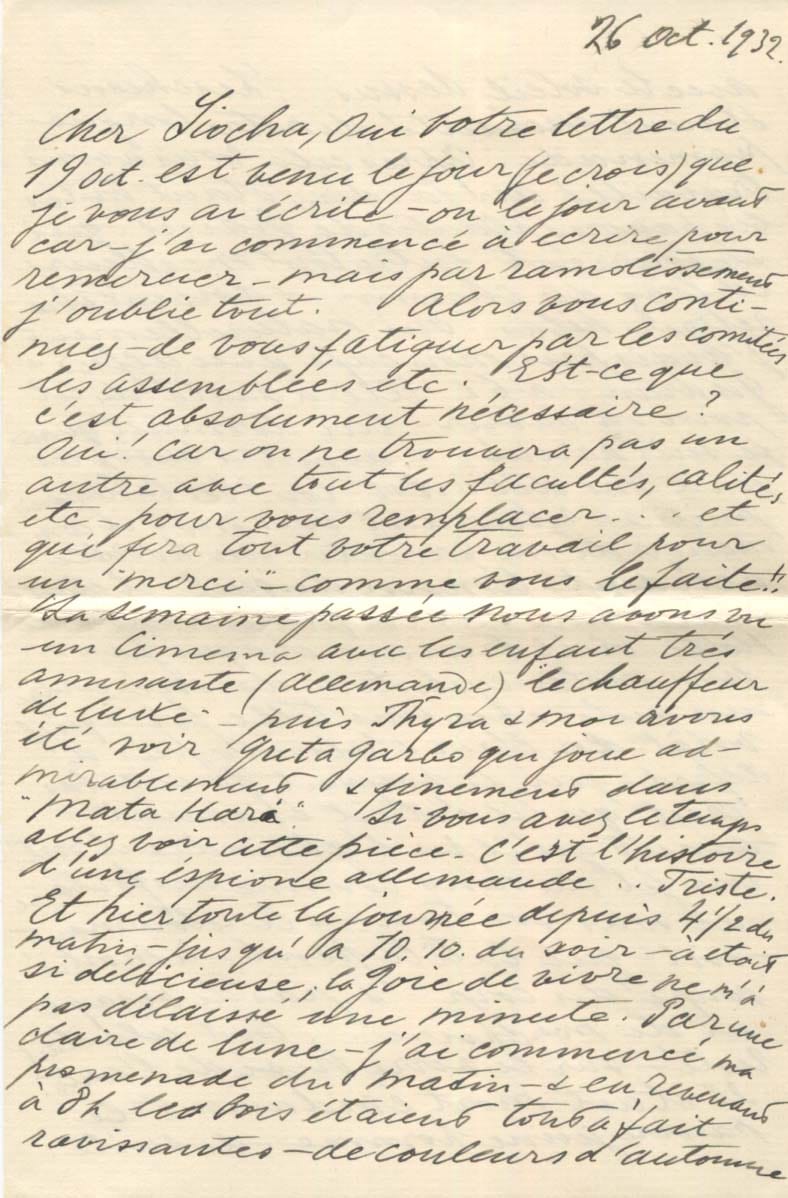 26 oct. 1932.
Cher Liocha, Oui votre lettre du
19 oct. est venu le jour (je crois) que
je vous ai écrite – ou le jour avant
car – j'ai commencé à ecrire pour
remercier – mais par ramolissement
j'oublie tout. Alors vous conti-
nuez – de vous fatiguer par les comités
les assemblées etc. Est-ce que
c'est absolument nécessaire?
Oui! Car on ne trouvera pas un
autre avec tout les facultés, calités,
etc – pour vous remplacer... et
qui fera tout votre travail pour
un "merci" – comme vous le faite!!
La semaine passée nous avons vu
un Cimema avec les enfant très
amusante (allemande) "le chauffeur
de luxe" – puis Thyra & moi avons
été voir Greta Garbo qui joue ad-
mirablement & finement dans
"Mata Hari". Si vous avez le temps
allez voir cette pièce – C'est l'histoire
d'une éspione allemande .. Triste.
Et hier toute la journée depuis 4 1/2 du
matin – jusqu'à 10.10. du soir – à etait
si délicieuse, la joie de vivre ne m'a
pas délaissé une minute. Par une
claire de lune – j'ai commencé ma
promenade du matin – & en revenant
à 8h les bois étaient tout à fait
ravissantes – de couleurs d'automne